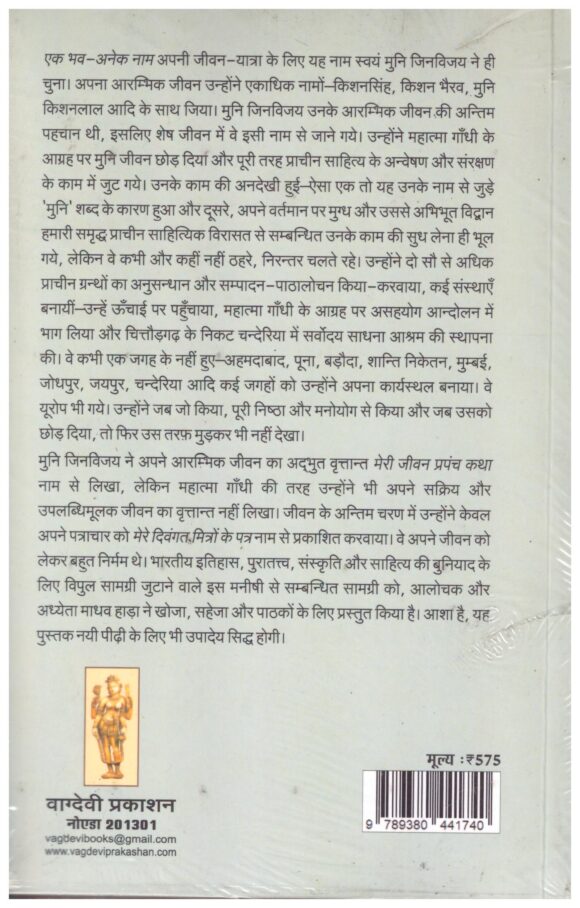 एक भव–अनेक नाम अपनी जीवन-यात्रा के लिए यह नाम स्वयं मुनि जिनविजय ने ही
चुना। अपना आरम्भिक जीवन उन्होंने एकाधिक नामों–किशनसिंह, किशन भैरव, मुनि
किशनलाल आदि के साथ जिया। मुनि जिनविजय उनके आरम्भिक जीवन की अन्तिम
पहचान थी, इसलिए शेष जीवन में वे इसी नाम से जाने गये। उन्होंने महात्मा गाँधी के
आग्रह पर मुनि जीवन छोड़ दिया और पूरी तरह प्राचीन साहित्य के अन्वेषण और संरक्षण
के काम में जुट गये। उनके काम की अनदेखी हुई–ऐसा एक तो यह उनके नाम से जुड़े
'मुनि' शब्द के कारण हुआ और दूसरे, अपने वर्तमान पर मुग्ध और उससे अभिभूत विद्वान
हमारी समृद्ध प्राचीन साहित्यिक विरासत से सम्बन्धित उनके काम की सुध लेना ही भूल
गये, लेकिन वे कभी और कहीं नहीं ठहरे, निरन्तर चलते रहे। उन्होंने दो सौ से अधिक
प्राचीन ग्रन्थों का अनुसन्धान और सम्पादन-पाठालोचन किया-करवाया, कई संस्थाएँ
बनायीं–उन्हें ऊँचाई पर पहुँचाया, महात्मा गाँधी के आग्रह पर असहयोग आन्दोलन में
भाग लिया और चित्तौड़गढ़ के निकट चन्देरिया में सर्वोदय साधना आश्रम की स्थापना
की। वे कभी एक जगह के नहीं हुए–अहमदाबाद, पूना, बड़ौदा, शान्ति निकेतन, मुम्बई,
जोधपुर, जयपुर, चन्देरिया आदि कई जगहों को उन्होंने अपना कार्यस्थल बनाया। वे
यूरोप भी गये। उन्होंने जब जो किया, पूरी निष्ठा और मनोयोग से किया और जब उसको
छोड़ दिया, तो फिर उस तरफ़ मुड़कर भी नहीं देखा।
मुनि जिनविजय ने अपने आरम्भिक जीवन का अद्भुत वृत्तान्त मेरी जीवन प्रपंच कथा
नाम से लिखा, लेकिन महात्मा गाँधी की तरह उन्होंने भी अपने सक्रिय और
उपलब्धिमूलक जीवन का वृत्तान्त नहीं लिखा। जीवन के अन्तिम चरण में उन्होंने केवल
अपने पत्राचार को मेरे दिवंगत मित्रों के पत्र नाम से प्रकाशित करवाया। वे अपने जीवन को
लेकर बहुत निर्मम थे। भारतीय इतिहास, पुरातत्त्व, संस्कृति और साहित्य की बुनियाद के
लिए विपुल सामग्री जुटाने वाले इस मनीषी से सम्बन्धित सामग्री को, आलोचक और
अध्येता माधव हाड़ा ने खोजा, सहेजा और पाठकों के लिए प्रस्तुत किया है। आशा है, यह
पुस्तक नयी पीढ़ी के लिए भी उपादेय सिद्ध होगी।
मूल्य : ₹575
9 789380 441740
वाग्देवी प्रकाशन
नोएडा 201301
vagdevibooks@gmail.com
www.vagdeviprakashan.com